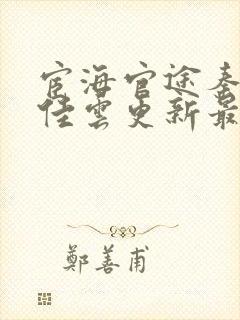 宦海官途秦
佳雲更新最
鄭善甫